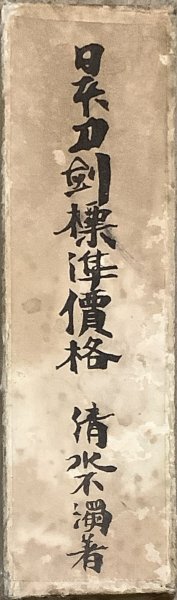 日本刀劍標準價格 清水不濁著